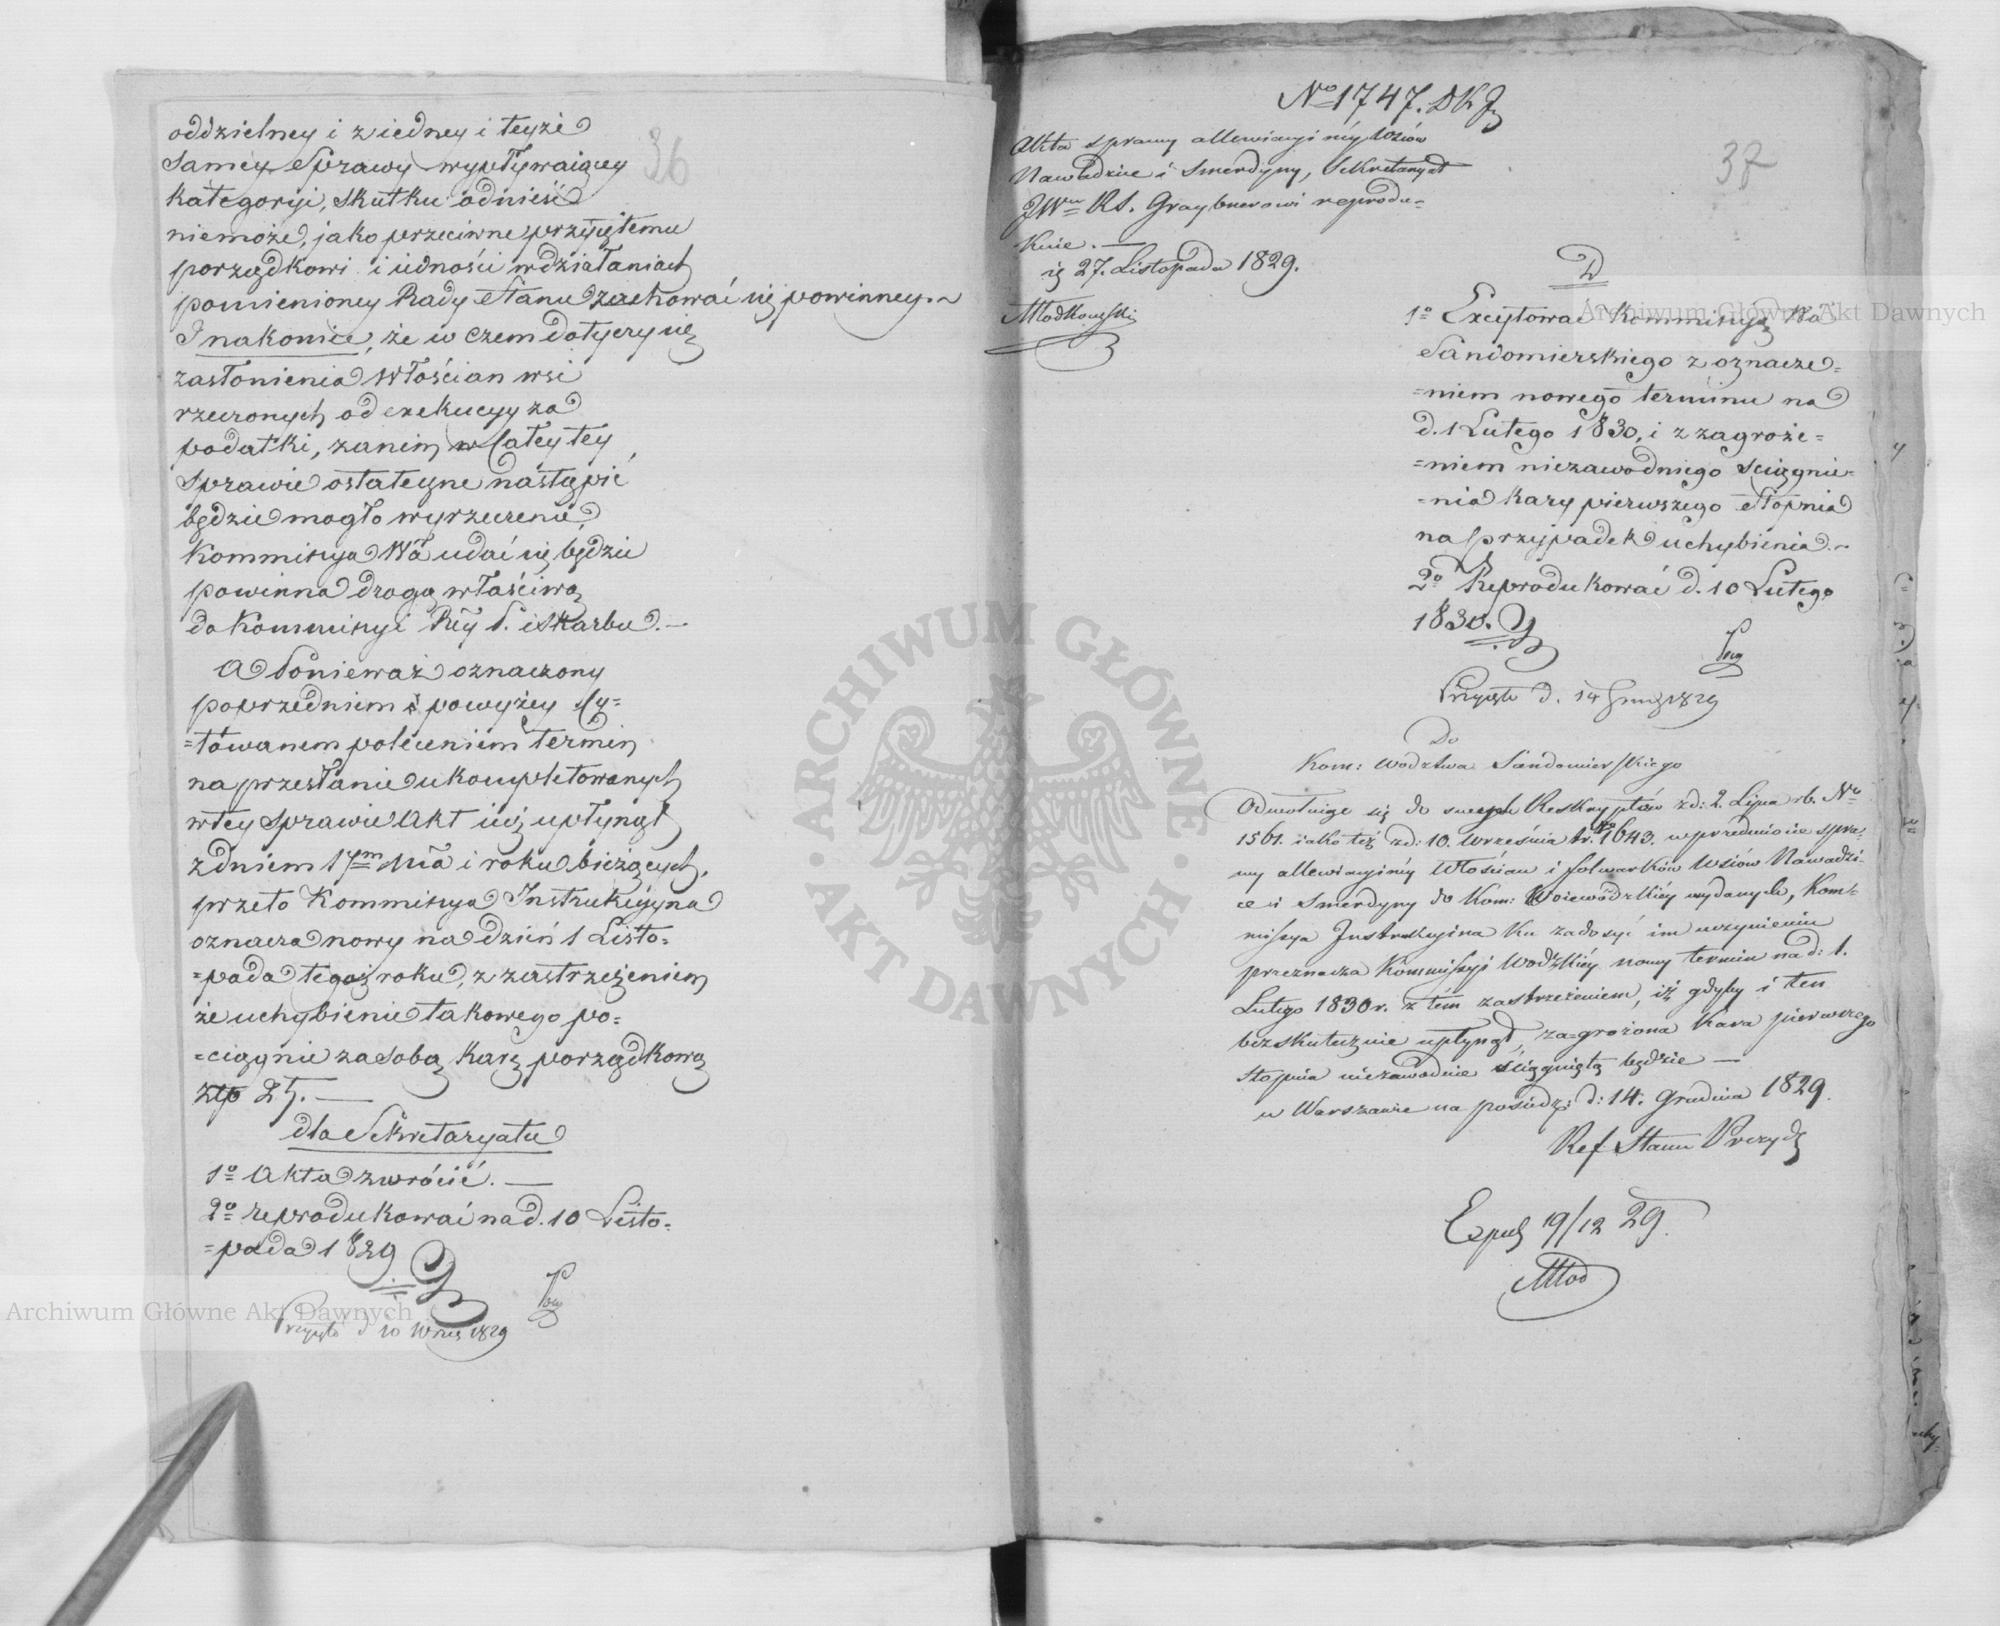 36
oddzielney i z iedney i teyże
samey Sprawy wypływaiącey
kategoryi, skutku odnieść
niemoże, jako przeciwne przyiętemu
porządkowi i iedności w działaniach
pomienioney Rady Stanu zachować się powinney.~
I nakoniec, że w czem dotyczy się
zasłonienia Włościan wsi
rzeczonych od exekucyy za
podatki, zanim w całey tey
Sprawie ostateczne nastąpić
będzie mogło wyrzeczenie,
Kommissya Wa udać się będzie
powinna drogą właściwą
do Kommissyi Rzy P. i Skarbu.—
A Ponieważ oznaczony
poprzedniem i powyżey cy=
=towanem poleceniem termin
na przesłanie ukompletowanych
w tey sprawie Akt iuż upłynął
z dniem 17m Mca i roku bieżących,
przeto Kommissya Instrukcyyna
oznacza nowy na dzień 1 Listo=
=pada tegoż roku, z zastrzeżeniem
że uchybienie takowego po=
=ciągnie za sobą karę porządkową
złp 25.—
dla Sekretaryatu
1o Akta zwrócić.—
2o reprodukować na d. 10 Listo=
=pada 1829
Przyięto d 10 Wrześ 1829
No 1747. DKJ
37
Akta sprawy allewiacyinéy wsiów
Nawodzice i Smerdyny, Sekretaryat
JWu RS. Graybnerowi reprodu=
kuie.—
ię 27. Listopada 1829.
Młodkowski
D
1o Excytować Kommissyą Wa
Sandomierskiego z oznacze=
=niem nowego terminu na
d. 1 Lutego 1830, i z zagroże=
=niem niezawodnego ściągnie=
=nia kary pierwszego Stopnia
na przypadek uchybienia.~
2o Reprodukować d. 10 Lutego
1830.
Przyięto d. 14 Grud 1829
Do
Kom: Wodztwa Sandomierskiego
Odwołuiąc się do swych Reskryptów z d: 2. Lipca rb. No
1561. iako też z d: 10. Września br. No 1643. w przedmiocie spra=
wy allewiacyinéy Włościan i folwarków Wsiów Nawodzi=
ce i Smerdyny do Kom: Woiewódzkiéy wydanych, Kom=
missya Instrukcyina ku zadosyć im uczynieniu
przeznacza Kommissyi Wodzkiéy nowy termin na d: 1.
Lutego 1830 r. z tém zastrzeżeniem, iż gdyby i ten
bezskutecznie upłynął, zagrożona Kara pierwszego
Stopnia niezawodnie ściągniętą będzie —
w Warszawie na posiedz: d: 14. Grudnia 1829.
Ref Stanu Prezyd
Exped 19/12 29.
Młod
Archiwum Główne Akt Dawnych
Archiwum Główne Akt Dawnych
ARCHIWUM GŁÓWNE · AKT DAWNYCH ·